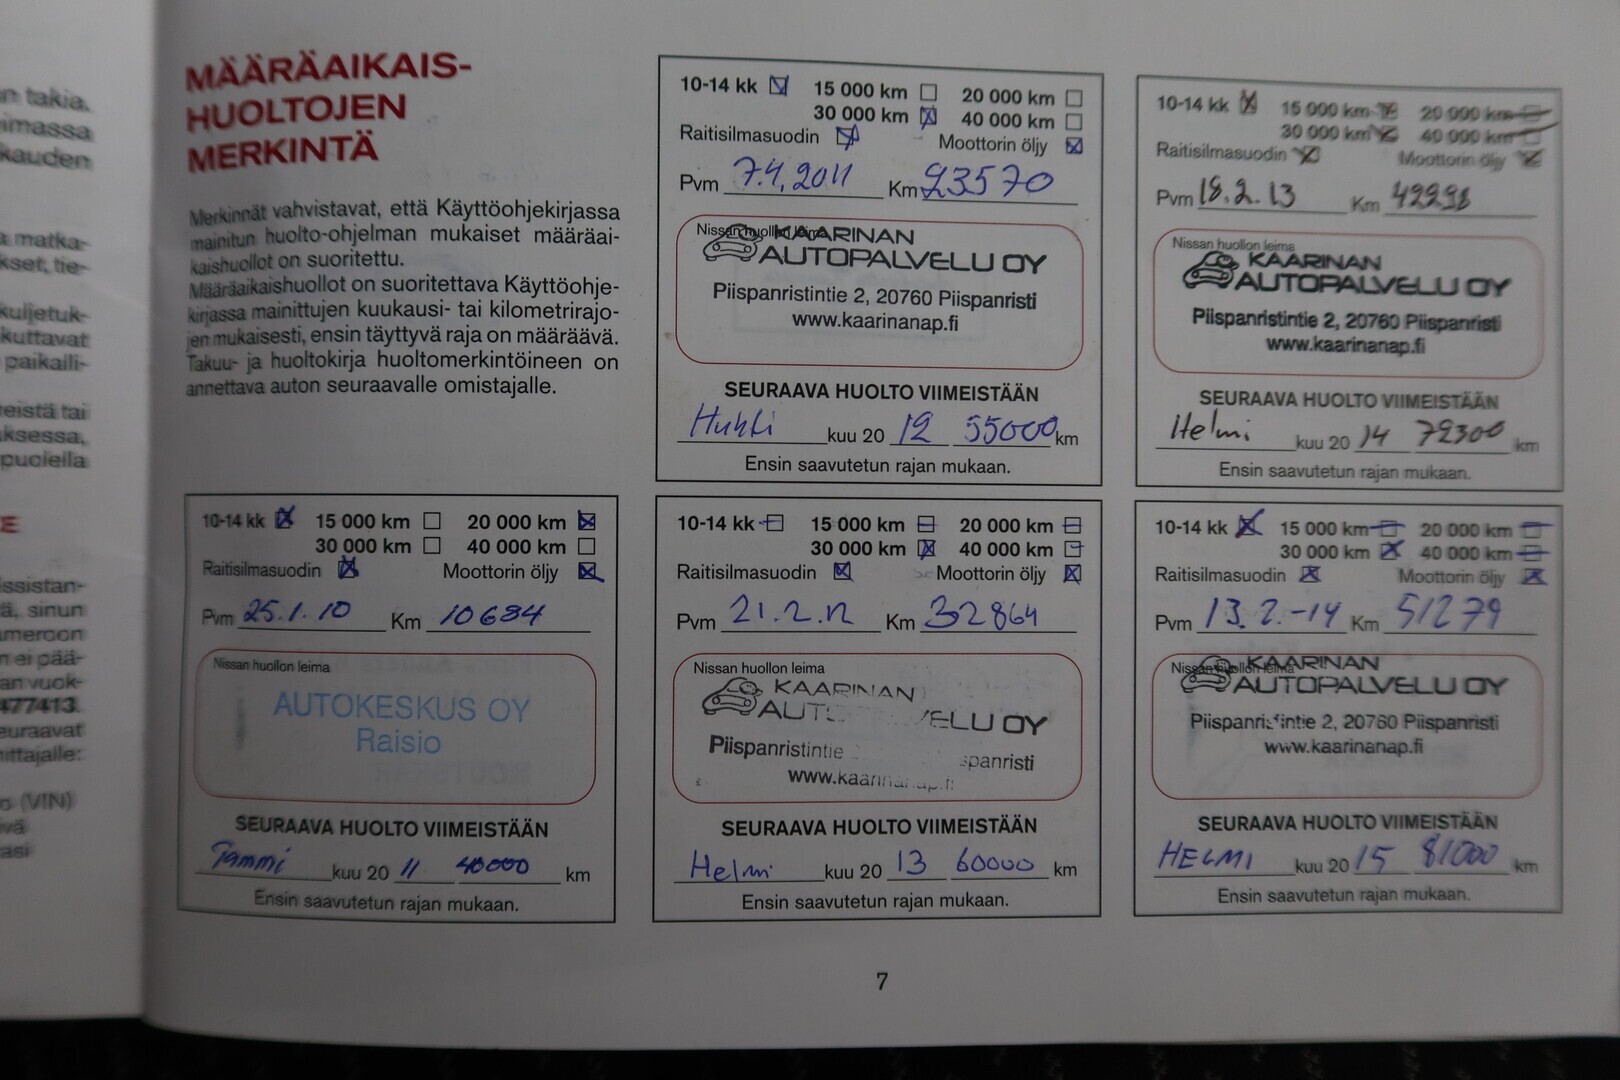 n takia,
imassa
kauden
a matka-
kset, tie-
kuljetuk-
kuttavat
paikalli-
eistä tai
uksessa,
puolella
E
ssistan-
ä, sinun
ameroon
n ei pää-
an vuok-
477413.
euraavat
ittajalle:
o (VIN)
ivä
asi
MÄÄRÄAIKAIS-
HUOLTOJEN
MERKINTÄ
Merkinnät vahvistavat, että Käyttöohjekirjassa
mainitun huolto-ohjelman mukaiset määräai-
kaishuollot on suoritettu.
Määräaikaishuollot on suoritettava Käyttöohje-
kirjassa mainittujen kuukausi- tai kilometrirajo-
jen mukaisesti, ensin täyttyvä raja on määräävä.
Takuu- ja huoltokirja huoltomerkintöineen on
annettava auton seuraavalle omistajalle.
10-14 kk 15 000 km 20 000 km
30 000 km 40 000 km
Raitisilmasuodin Moottorin öljy
Pvm 25.1.10 Km 10684
Nissan huollon leima
AUTOKESKUS OY
Raisio
SEURAAVA HUOLTO VIIMEISTÄÄN
Tammi kuu 20 11 40000 km
Ensin saavutetun rajan mukaan.
10-14 kk 15 000 km 20 000 km
30 000 km 40 000 km
Raitisilmasuodin Moottorin öljy
Pvm 7.4.2011 Km 23570
Nissan huollon leima
KAARINAN
AUTOPALVELU OY
Piispanristintie 2, 20760 Piispanristi
www.kaarinanap.fi
SEURAAVA HUOLTO VIIMEISTÄÄN
Huhti kuu 20 12 55000 km
Ensin saavutetun rajan mukaan.
10-14 kk 15 000 km 20 000 km
30 000 km 40 000 km
Raitisilmasuodin Moottorin öljy
Pvm 21.2.12 Km 32864
Nissan huollon leima
KAARINAN
AUTO VELU OY
Piispanristintie spanristi
www.kaarinanap.fi
SEURAAVA HUOLTO VIIMEISTÄÄN
Helmi kuu 20 13 60000 km
Ensin saavutetun rajan mukaan.
10-14 kk 15 000 km 20 000 km
30 000 km 40 000 km
Raitisilmasuodin Moottorin öljy
Pvm 18.2.13 Km 42298
Nissan huollon leima
KAARINAN
AUTOPALVELU OY
Piispanristintie 2, 20760 Piispanristi
www.kaarinanap.fi
SEURAAVA HUOLTO VIIMEISTÄÄN
Helmi kuu 20 14 72300 km
Ensin saavutetun rajan mukaan.
10-14 kk 15 000 km 20 000 km
30 000 km 40 000 km
Raitisilmasuodin Moottorin öljy
Pvm 13.2.-14 Km 51279
Nissan huollon leima
KAARINAN
AUTOPALVELU OY
Piispanristintie 2, 20760 Piispanristi
www.kaarinanap.fi
SEURAAVA HUOLTO VIIMEISTÄÄN
HELMI kuu 20 15 81000 km
Ensin saavutetun rajan mukaan.
7